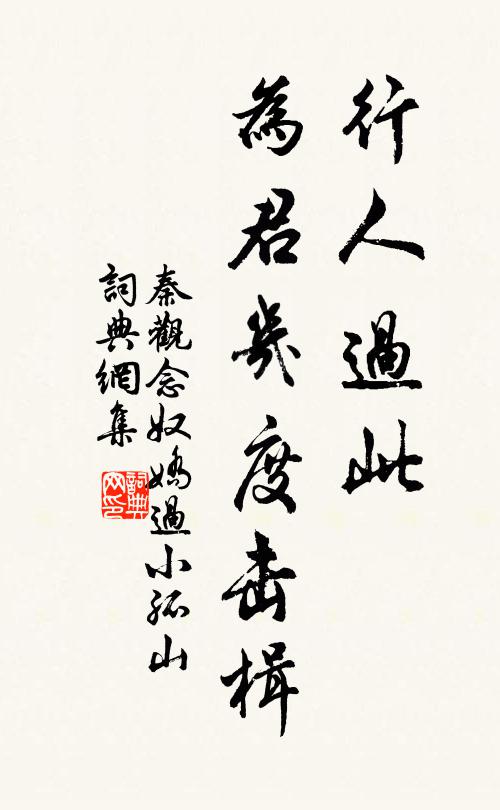 行人過此
為君幾度击楫
秦觀念奴嬌過小孤山
詞典網集
詞典网印